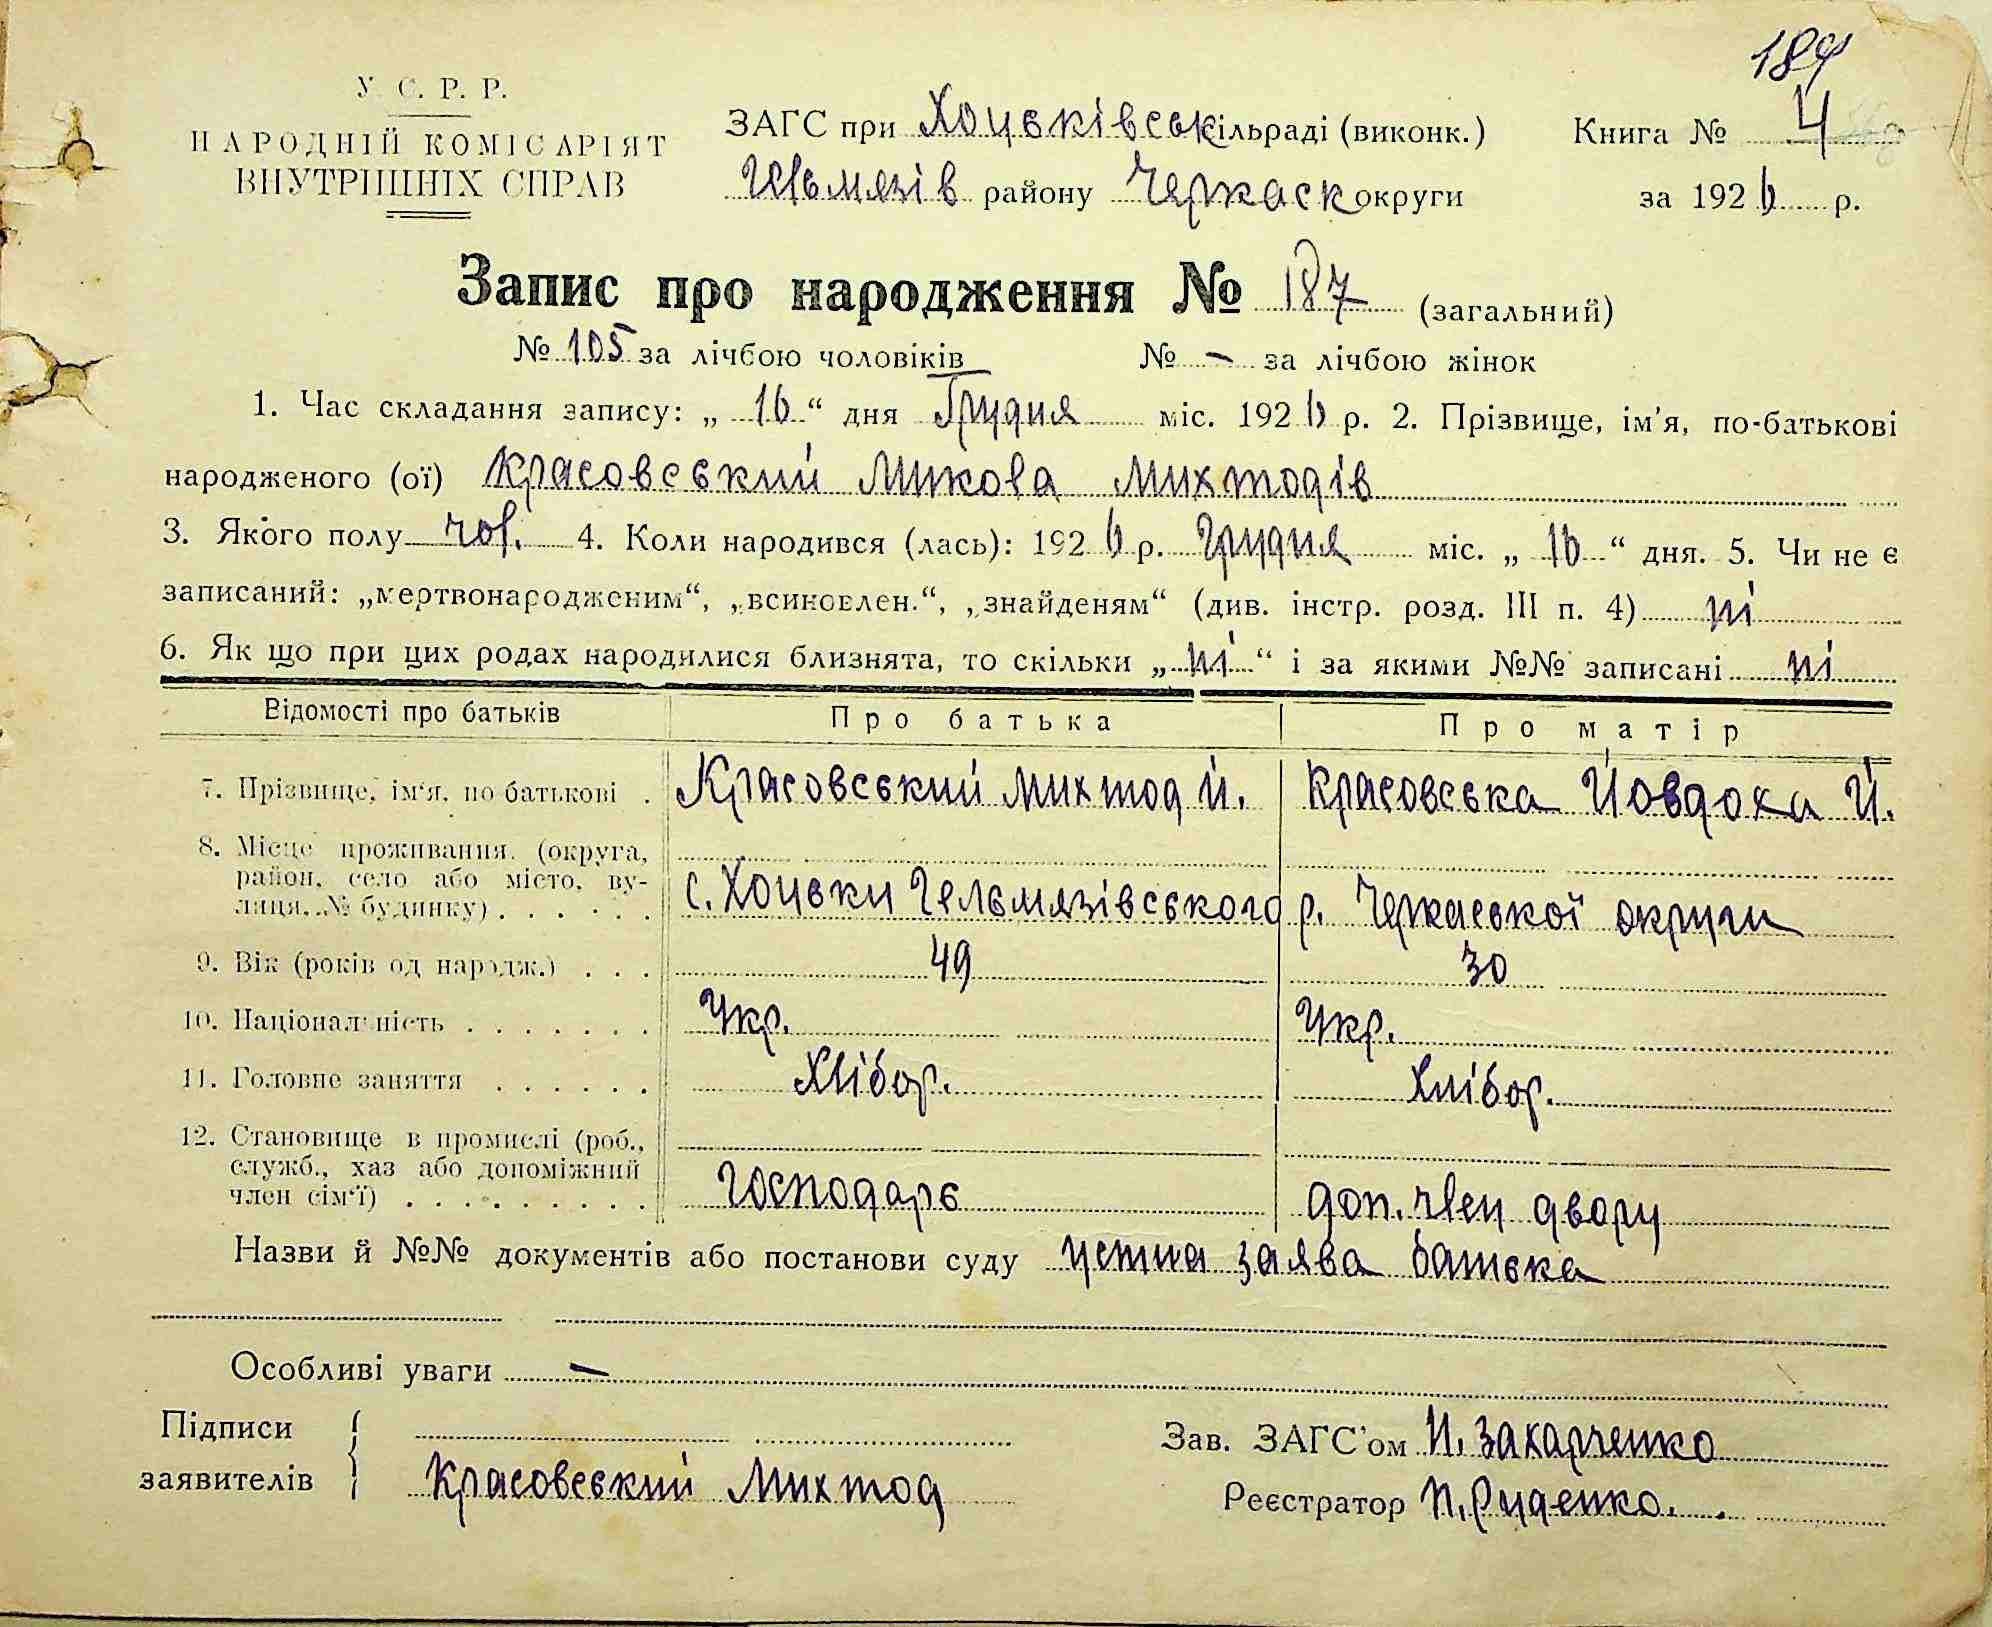 187
У. С. Р. Р.
НАРОДНІЙ КОМІСАРІЯТ
ВНУТРІШНІХ СПРАВ
ЗАГС при Хоцьківськ сільраді (виконк.) Книга № 4
Гельмязів району Черкаск округи за 1926 р.
Запис про народження № 187 (загальний)
№ 105 за лічбою чоловіків № – за лічбою жінок
1. Час складання запису: „16“ дня Грудня міс. 1926 р. 2. Прізвище, ім'я, по-батькові
народженого (ої) Красовський Микола Михтодів
3. Якого полу чол. 4. Коли народився (лась): 1926 р. Грудня міс. „16“ дня. 5. Чи не є
записаний: „мертвонародженим“, „всиновлен.“, „знайденям“ (див. інстр. розд. III п. 4) ні
6. Як що при цих родах народилися близнята, то скільки „ні“ і за якими №№ записані ні
Відомості про батьків Про батька Про матір
7. Прізвище, ім'я, по батькові . Красовський Михтод Й. Красовська Йовдоха Й.
8. Місце проживання. (округа,
район, село або місто, ву-
лиця, № будинку) . . . . . . с. Хоцьки Гельмязівського р. Черкаської округи
9. Вік (років од народж.) . . . 49 30
10. Національність . . . . . . . Укр. Укр.
11. Головне заняття . . . . . . Хлібор. Хлібор.
12. Становище в промислі (роб.,
служб., хаз або допоміжний
член сім'ї) . . . . . . . . . Господарь доп. член двору
Назви й №№ документів або постанови суду устна заява батька
Особливі уваги –
Підписи
заявителів Красовський Михтод
Зав. ЗАГС'ом И. Захарченко
Реєстратор П. Руденко.